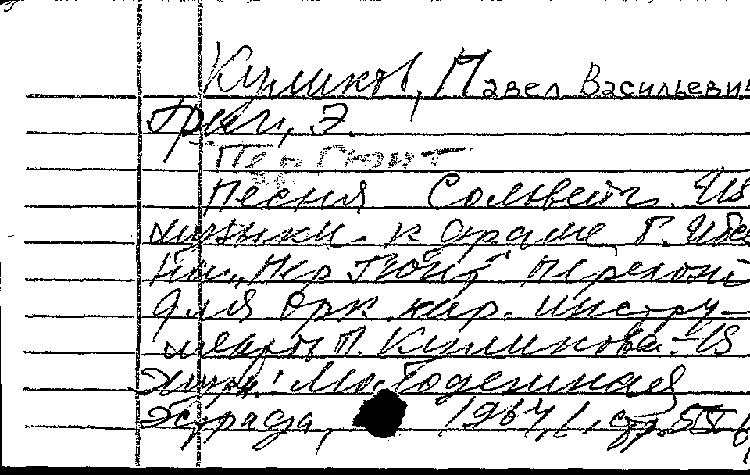 Куликов, Павел Васильевич
Григ, Э.
Пер Гюнт
Песня Сольвейг. Из
музыки к драме Г. Ибсе
на „Пер Гюнт" перелож
для орк нар. инстру-
мента П. Куликова - В
журн: Молодежная
Эстрада, 1964, стр.